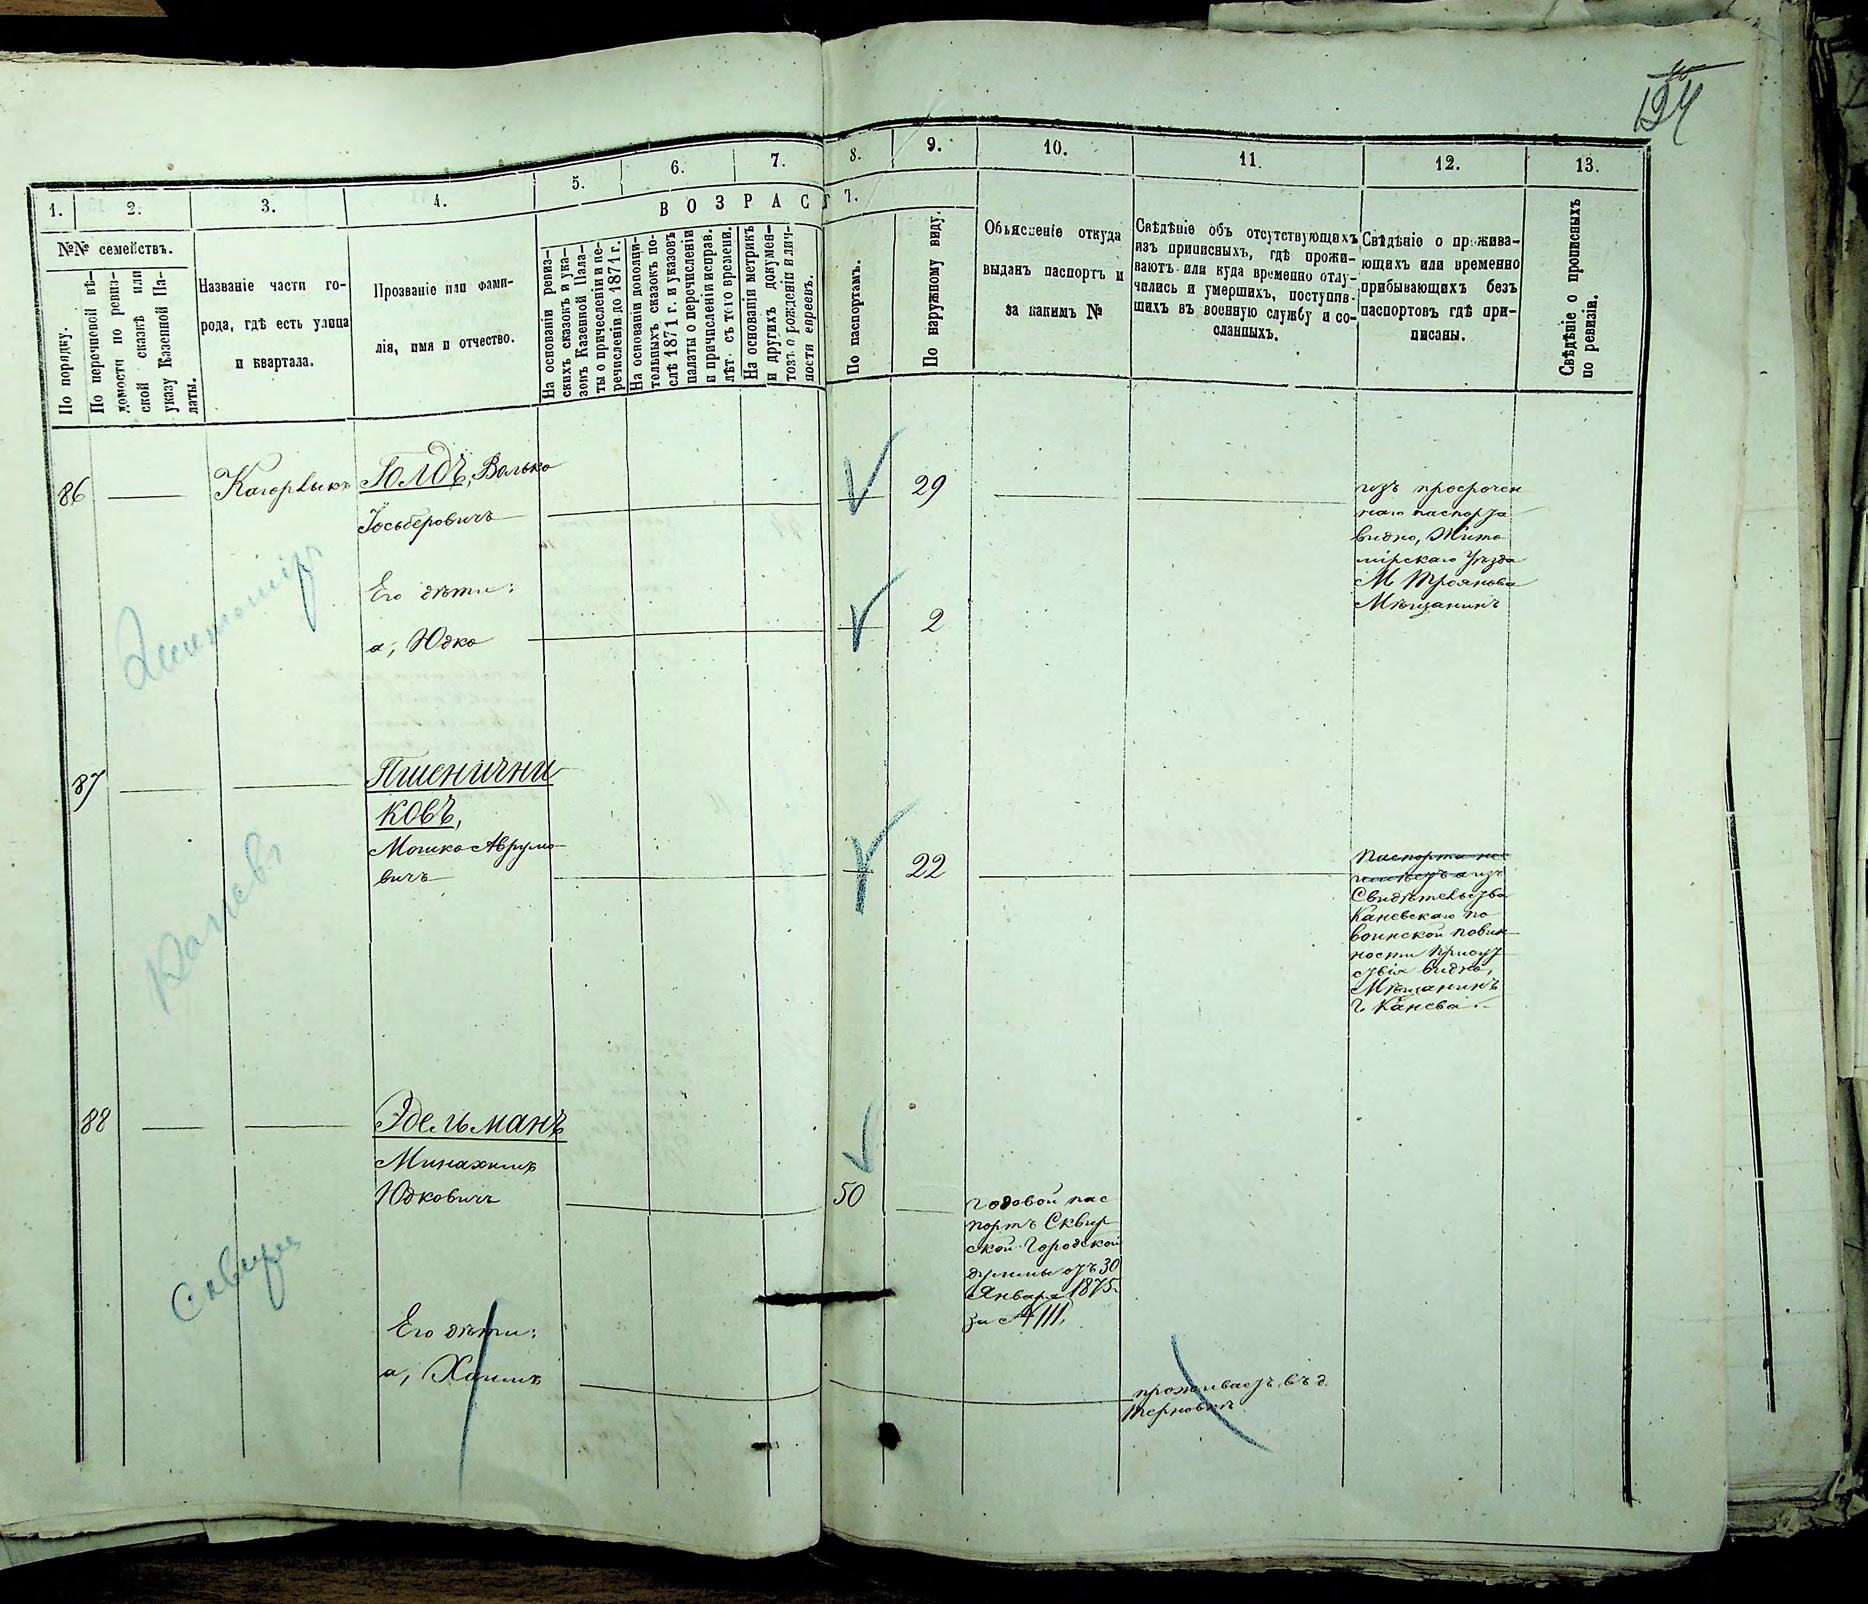 124
1.
2.
3.
4.
5.
6.
7.
8.
9.
10.
11.
12.
13.
ВОЗРАСТ
7.
№№ семействъ.
По порядку.
По перечневой вѣ-
домости по ревиз-
ской сказкѣ или
указу Казенной Па-
латы.
Названіе части го-
рода, гдѣ есть улица
и квартала.
Прозваніе или фами-
лія, имя и отчество.
На основаніи ревиз-
скихъ сказокъ и ука-
зовъ Казенной Пала-
ты о причисленіи и пе-
речисленіи до 1871 г.
На основаніи дополни-
тельныхъ сказокъ по-
слѣ 1871 г. и указовъ
палаты о перечисленіи
и причисленіи исправ.
лѣт. съ того времени.
На основаніи метрикъ
и другихъ докумен-
товъ о рожденіи и лич-
ности евреевъ.
По паспортамъ.
По наружному виду.
Объясненіе откуда
выданъ паспортъ и
за какимъ №
Свѣдѣніе объ отсутствующихъ
изъ приписныхъ, гдѣ прожи-
ваютъ или куда временно отлу-
чились и умершихъ, поступив-
шихъ въ военную службу и со-
сланныхъ.
Свѣдѣніе о прожива-
ющихъ или временно
прибывающихъ безъ
паспортовъ гдѣ при-
писаны.
Свѣдѣніе о прописныхъ
по ревизіи.
86
Кагорлыкъ
Голдъ, Волько
Іосьберовичъ
29
изъ просрочен
наго паспорта
видно, Жито
мірскаго Уѣзда
М. Троянова
Мѣщанинъ
Его дѣти:
а, Юдко
2
87
Пшенични
ковъ,
Мошко Аврумо-
вичъ
22
Паспорта не
изъ
Свидѣтельства
Каневскаго по
воинской повин-
ности Присут
ствія видно,
Мѣщанинъ
г. Канева
Каневъ
88
Эдельманъ
Минахимъ
Юдковичъ
50
Годовой пас
портъ Сквир
ской Городской
думы отъ 30
Января 1875
за № 111,
Сквира
Его дѣти:
а, Хаимъ
проживаетъ въ д.
Терновкѣ